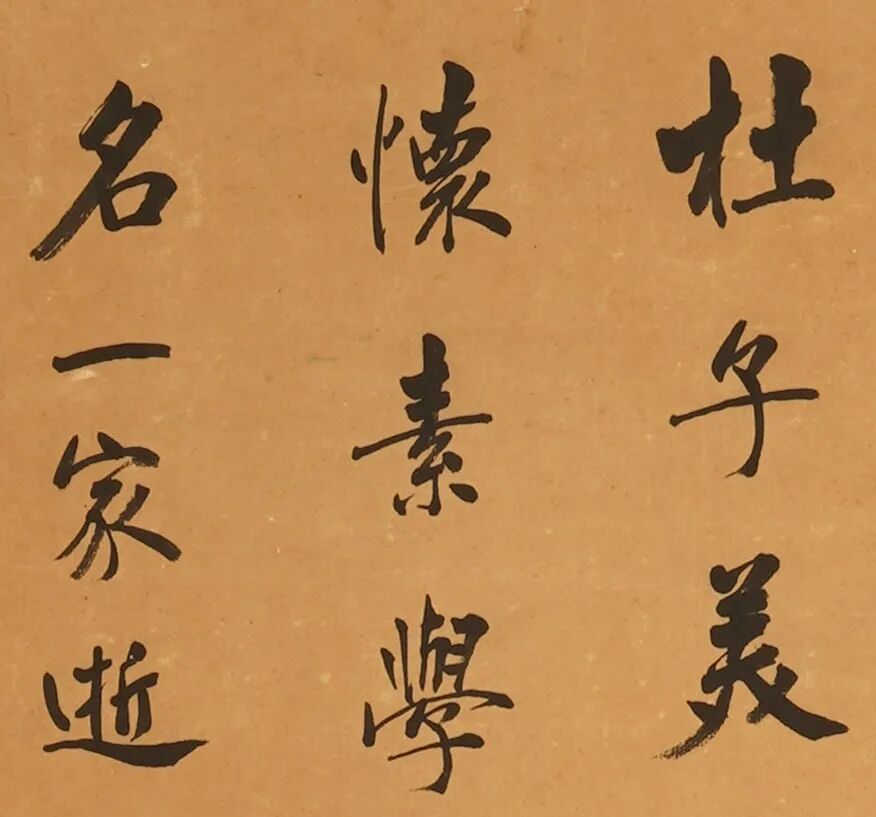 杜子美
懷素學
名一家逝